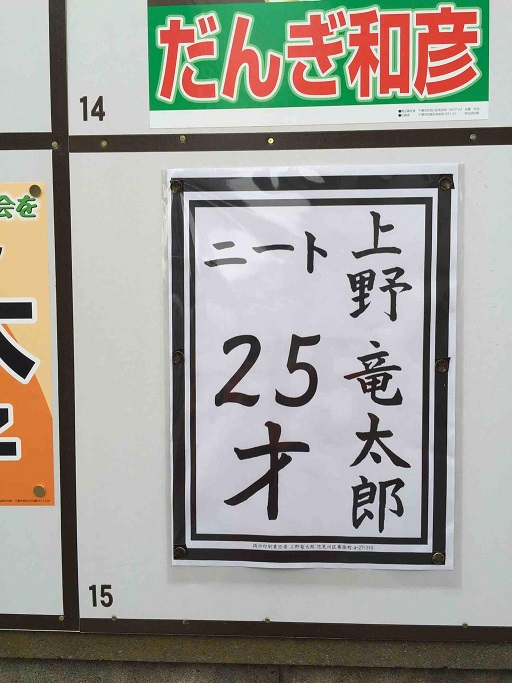 だんぎ和彦
14
会を
上野 竜太郎
ニート
25
才
15